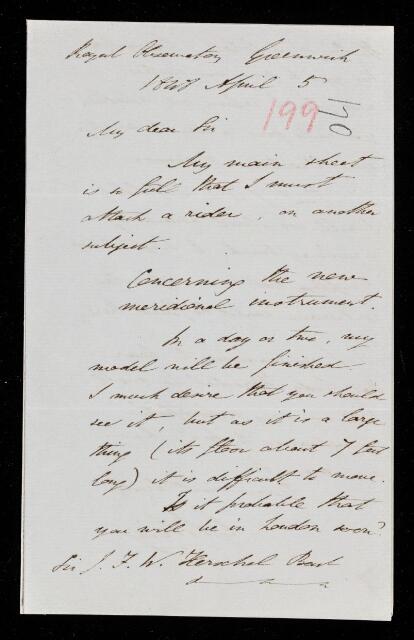 Royal Observatory Greenwich
1848 April 5
199
170
My dear Sir
My main sheet
is so full that I must
attach a rider, on another
subject.
Concerning the new
meridional instrument.
In a day or two, my
model will be finished.
I much desire that you should
see it, but as it is a large
thing (its floor about 7 feet
long) it is difficult to move.
Is it probable that
you will be in London soon?
Sir J. F. W. Herschel Bart